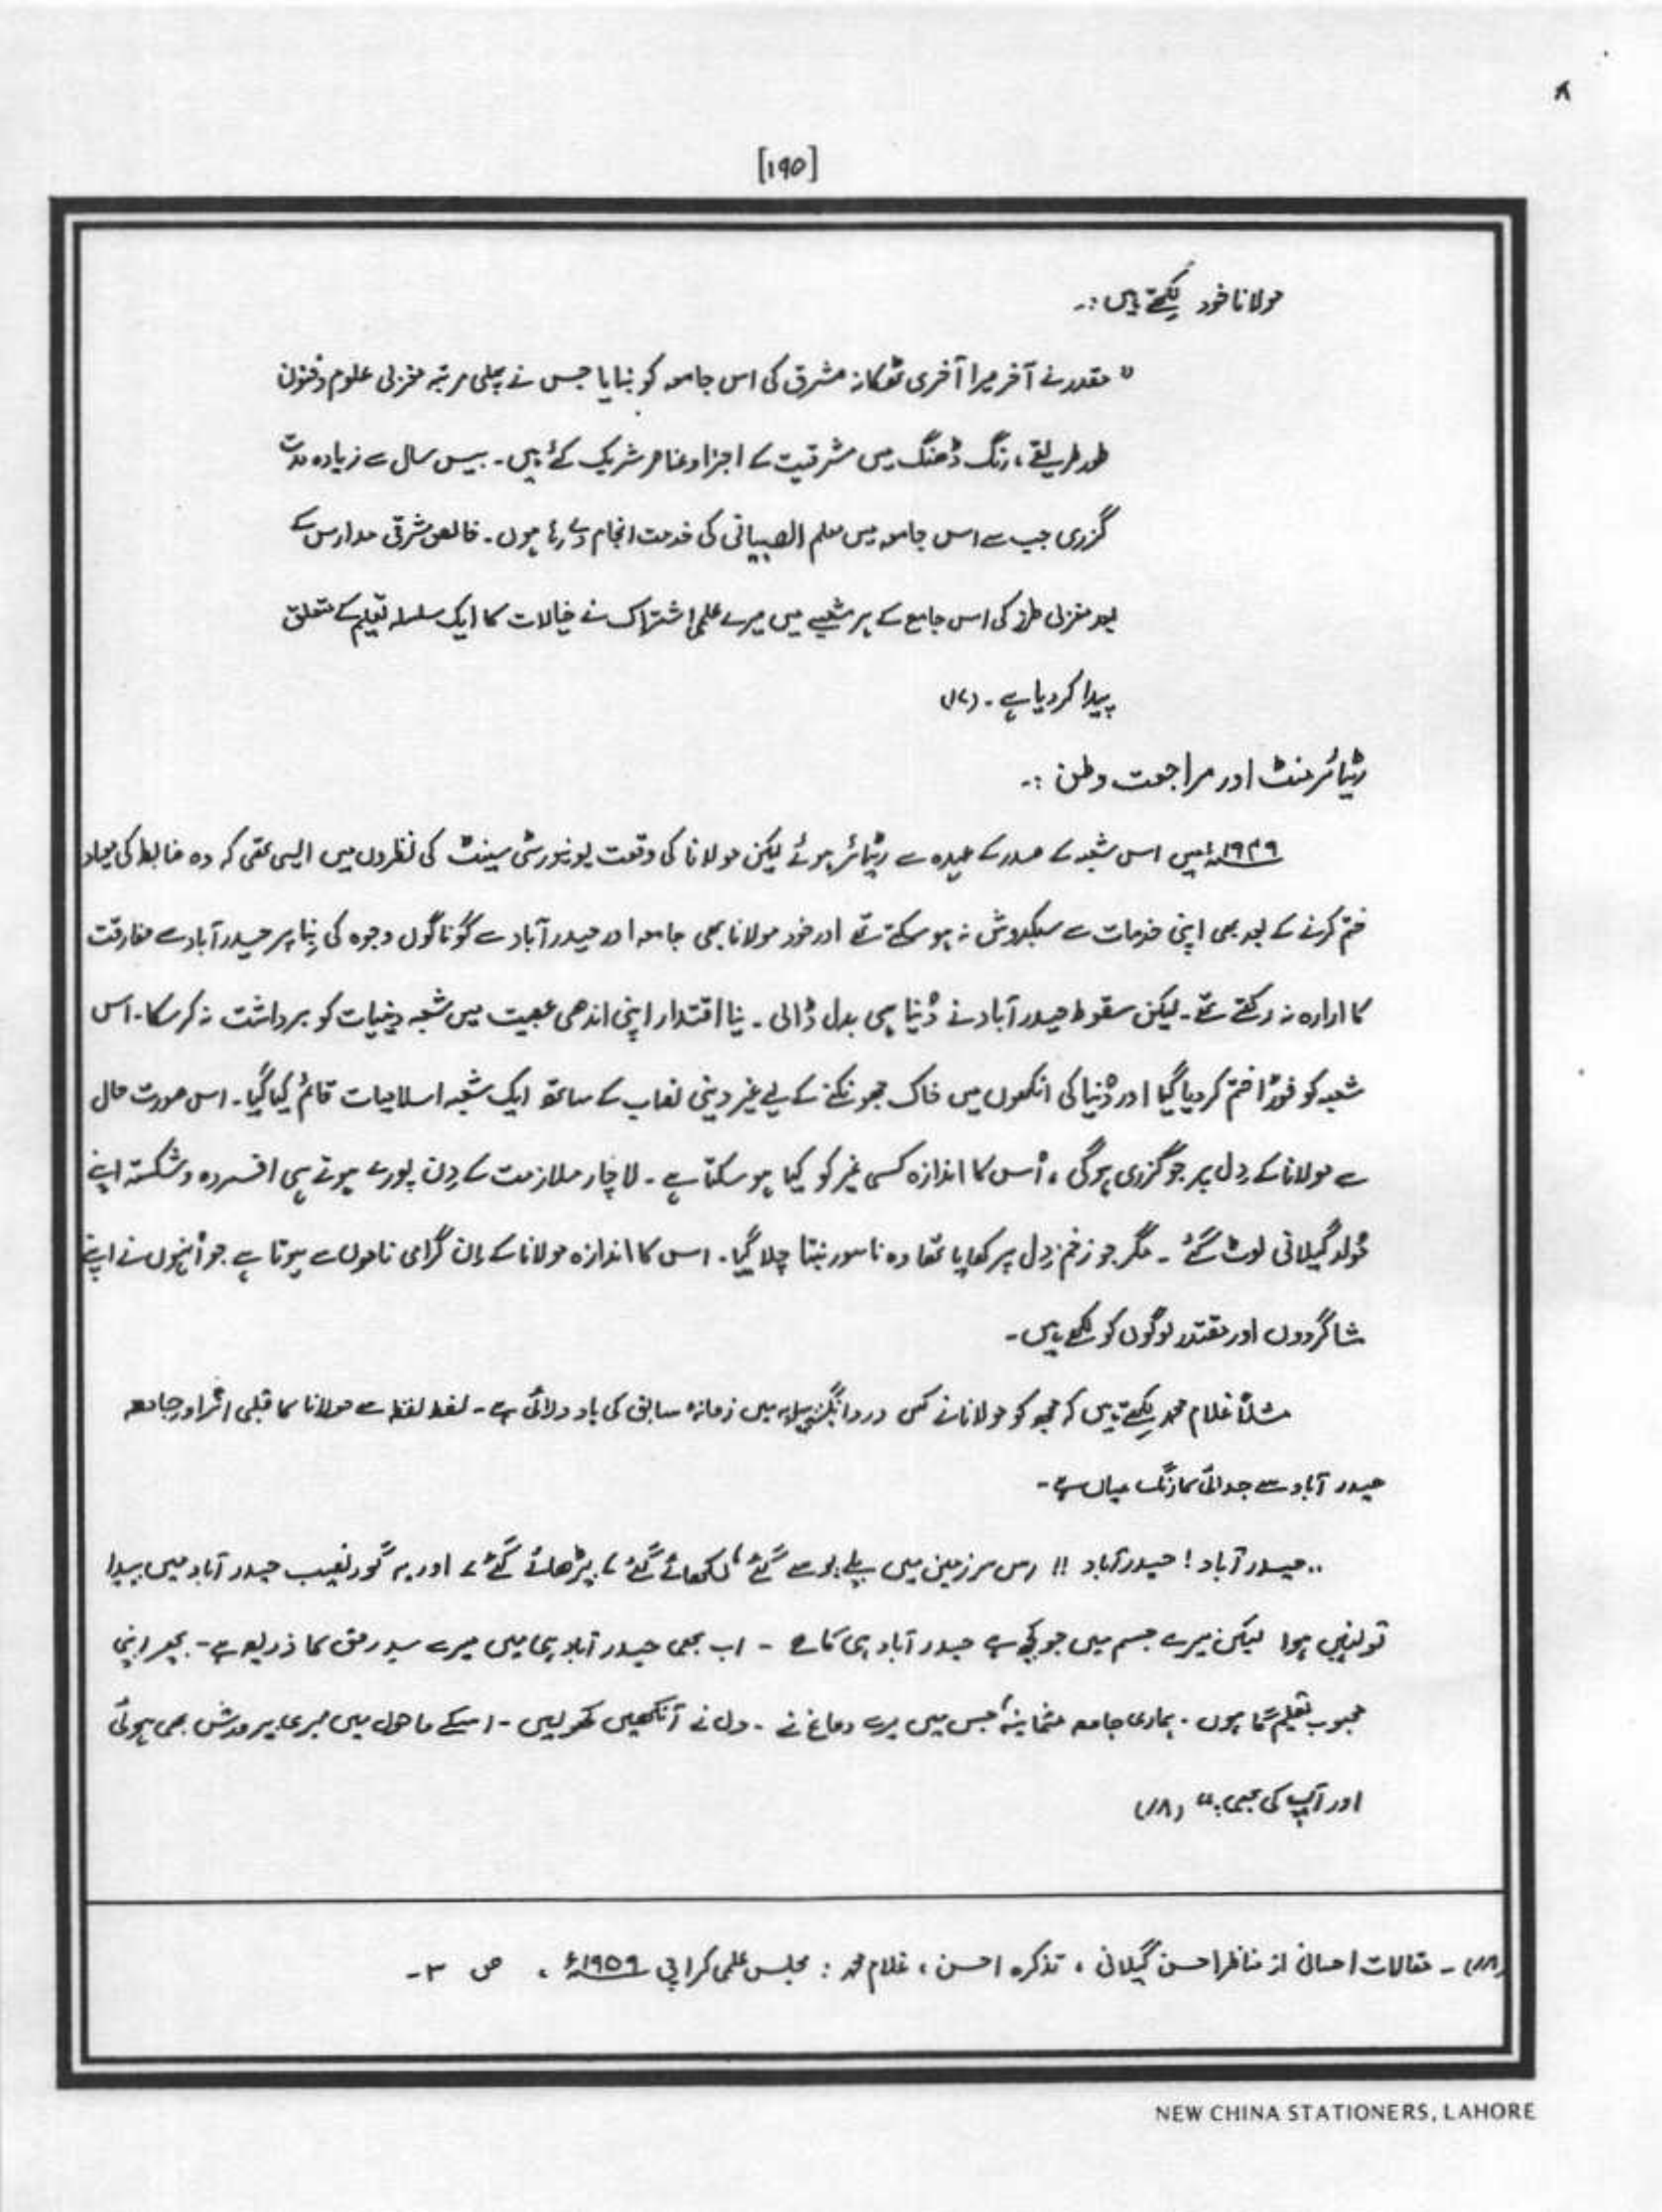 ۸
[۱۹۵]
مولانا خود لکھتے ہیں :۔
" مقدر نے آخر میرا آخری ٹھکانہ مشرق کی اس جامعہ کو بنایا جس نے پہلی مرتبہ مغربی علوم و فنون
طور طریقے ، رنگ ڈھنگ میں مشرقیت کے اجزا و عناصر شریک کئے ہیں۔ بیس سال سے زیادہ مدت
گزری جب سے اس جامعہ میں معلم الصبیانی کی خدمت انجام دے رہا ہوں۔ خالص مشرقی مدارس کے
بعد مغربی طرز کی اس جامع کے ہر شعبے میں میرے علمی اشتراک نے خیالات کا ایک سلسلہ تعلیم کے متعلق
پیدا کر دیا ہے۔ (۱۷)
ریٹائرمنٹ اور مراجعت وطن :۔
۱۹۴۹ء میں اس شعبہ کے صدر کے عہدہ سے ریٹائر ہوئے لیکن مولانا کی وقعت یونیورسٹی سینٹ کی نظروں میں ایسی تھی کہ وہ ضابطہ کی میعاد
ختم کرنے کے بعد بھی اپنی خدمات سے سبکدوش نہ ہو سکتے تھے اور خود مولانا بھی جامعہ اور حیدر آباد سے گوناگوں وجوہ کی بِنا پر حیدر آباد سے مفارقت
کا ارادہ نہ رکھتے تھے۔ لیکن سقوط حیدر آباد نے دُنیا ہی بدل ڈالی۔ نیا اقتدار اپنی اندھی عصبیت میں شعبہ دینیات کو برداشت نہ کر سکا۔ اس
شعبہ کو فوراً ختم کر دیا گیا اور دُنیا کی انکھوں میں خاک جھونکنے کے لیے غیر دینی نصاب کے ساتھ ایک شعبہ اسلامیات قائم کیا گیا۔ اس صورت حال
سے مولانا کے دِل پر جو گزری ہوگی ، اُس کا اندازہ کسی غیر کو کیا ہو سکتا ہے۔ لاچار ملازمت کے دِن پورے ہوتے ہی افسردہ و شکستہ اپنے
مُولد گیلانی لوٹ گئے ۔ مگر جو زخم دِل پر کھایا تھا وہ ناسور بنتا چلا گیا۔ اس کا اندازہ مولانا کے اِن گرامی ناموں سے ہوتا ہے جو اُنہوں نے اپنے
شاگردوں اور مقتدر لوگوں کو لکھے ہیں۔
مثلاً غلام محمد لکھتے ہیں کہ مجھ کو مولانا نے کس درد انگیز پیرایہ میں زمانہ سابق کی یاد دلائی ہے۔ لفظ لفظ سے مولانا کا قلبی اثر اور جامعہ
حیدر آباد سے جدائی کا رنگ عیاں ہے۔
،، حیدر آباد ! حیدر آباد !! اس سرزمین میں پلے پوسے گئے، لکھائے گئے، پڑھائے گئے، اور یہ گور نصیب حیدر آباد میں پیدا
تو نہیں ہوا لیکن میرے جسم میں جو کچھ ہے حیدر آباد ہی کا ہے ۔ اب بھی حیدر آباد ہی میں میرے سدِ رمق کا ذریعہ ہے۔ پھر اپنی
محبوب تعلیم گاہوں ۔ ہماری جامعہ عثمانیہ، جس میں میرے دماغ نے ۔ دل نے آنکھیں کھولیں ۔ اسکے ماحول میں میری پرورش بھی ہوئی
اور آپ کی بھی۔" (۱۸)
(۱۸) ۔ مقالات احسانی از مناظر احسن گیلانی ، تذکرہ احسن ، غلام محمد : مجلس علمی کراچی ۱۹۵۹ء ، ص ۳۔
NEW CHINA STATIONERS, LAHORE